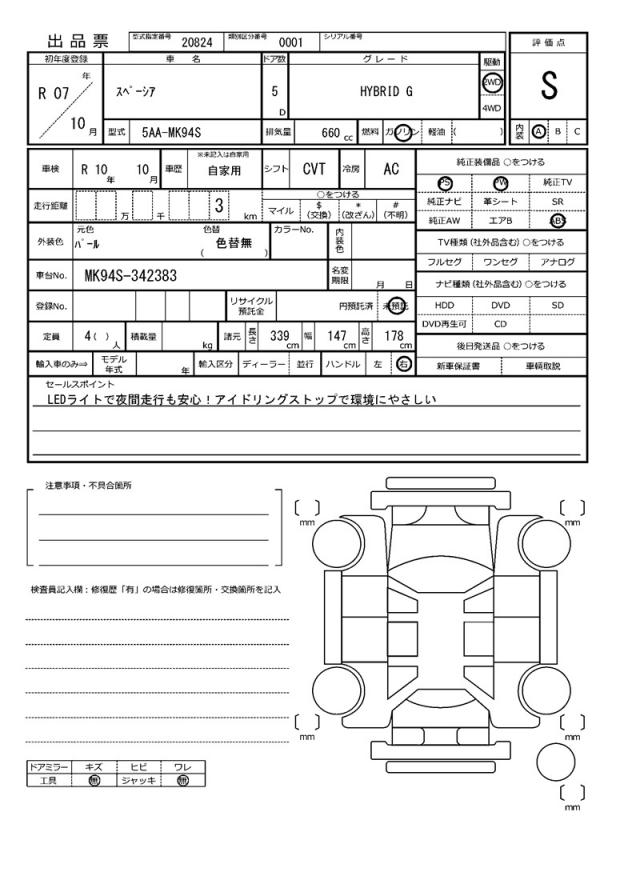 出品票 型式指定番号 20824 類別区分番号 0001 シリアル番号
初年度登録 車名 ドア数 グレード 駆動 評価点
R 07 年 10 月 スペーシア 5 D HYBRID G 2WD 4WD S
型式 5AA-MK94S 排気量 660 cc 燃料 ガソリン 軽油 ( ) 内装 A B C
車検 R 10 年 10 月 車歴 ※未記入は自家用 自家用 シフト CVT 冷房 AC
純正装備品 ○をつける
PS PW 純正TV
走行距離 万 千 3 km ○をつける
マイル $ (交換) * (改ざん) # (不明)
純正ナビ 革シート SR
純正AW エアB ABS
外装色 元色 パール 色替 色替無 ( ) カラーNo. 内装色
TV種類 (社外品含む) ○をつける
フルセグ ワンセグ アナログ
車台No. MK94S-342383 名変期限 月 日
ナビ種類 (社外品含む) ○をつける
登録No. リサイクル預託金 円預託済 未預託
HDD DVD SD
DVD再生可 CD
定員 4 ( ) 人 積載量 kg 諸元 長さ 339 cm 幅 147 cm 高さ 178 cm
後日発送品 ○をつける
輸入車のみ⇒ モデル年式 年 輸入区分 ディーラー 並行 ハンドル 左 右
新車保証書 車輌取説
セールスポイント
LEDライトで夜間走行も安心！アイドリングストップで環境にやさしい
注意事項・不具合箇所
mm mm
検査員記入欄：修復歴「有」の場合は修復箇所・交換箇所を記入
mm mm
ドアミラー キズ ヒビ ワレ
工具 無 ジャッキ 無
mm